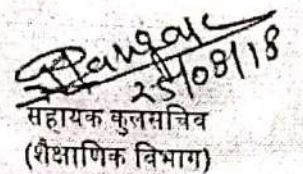 25/08/18
सहायक कुलसचिव
(शैक्षाणिक विभाग)